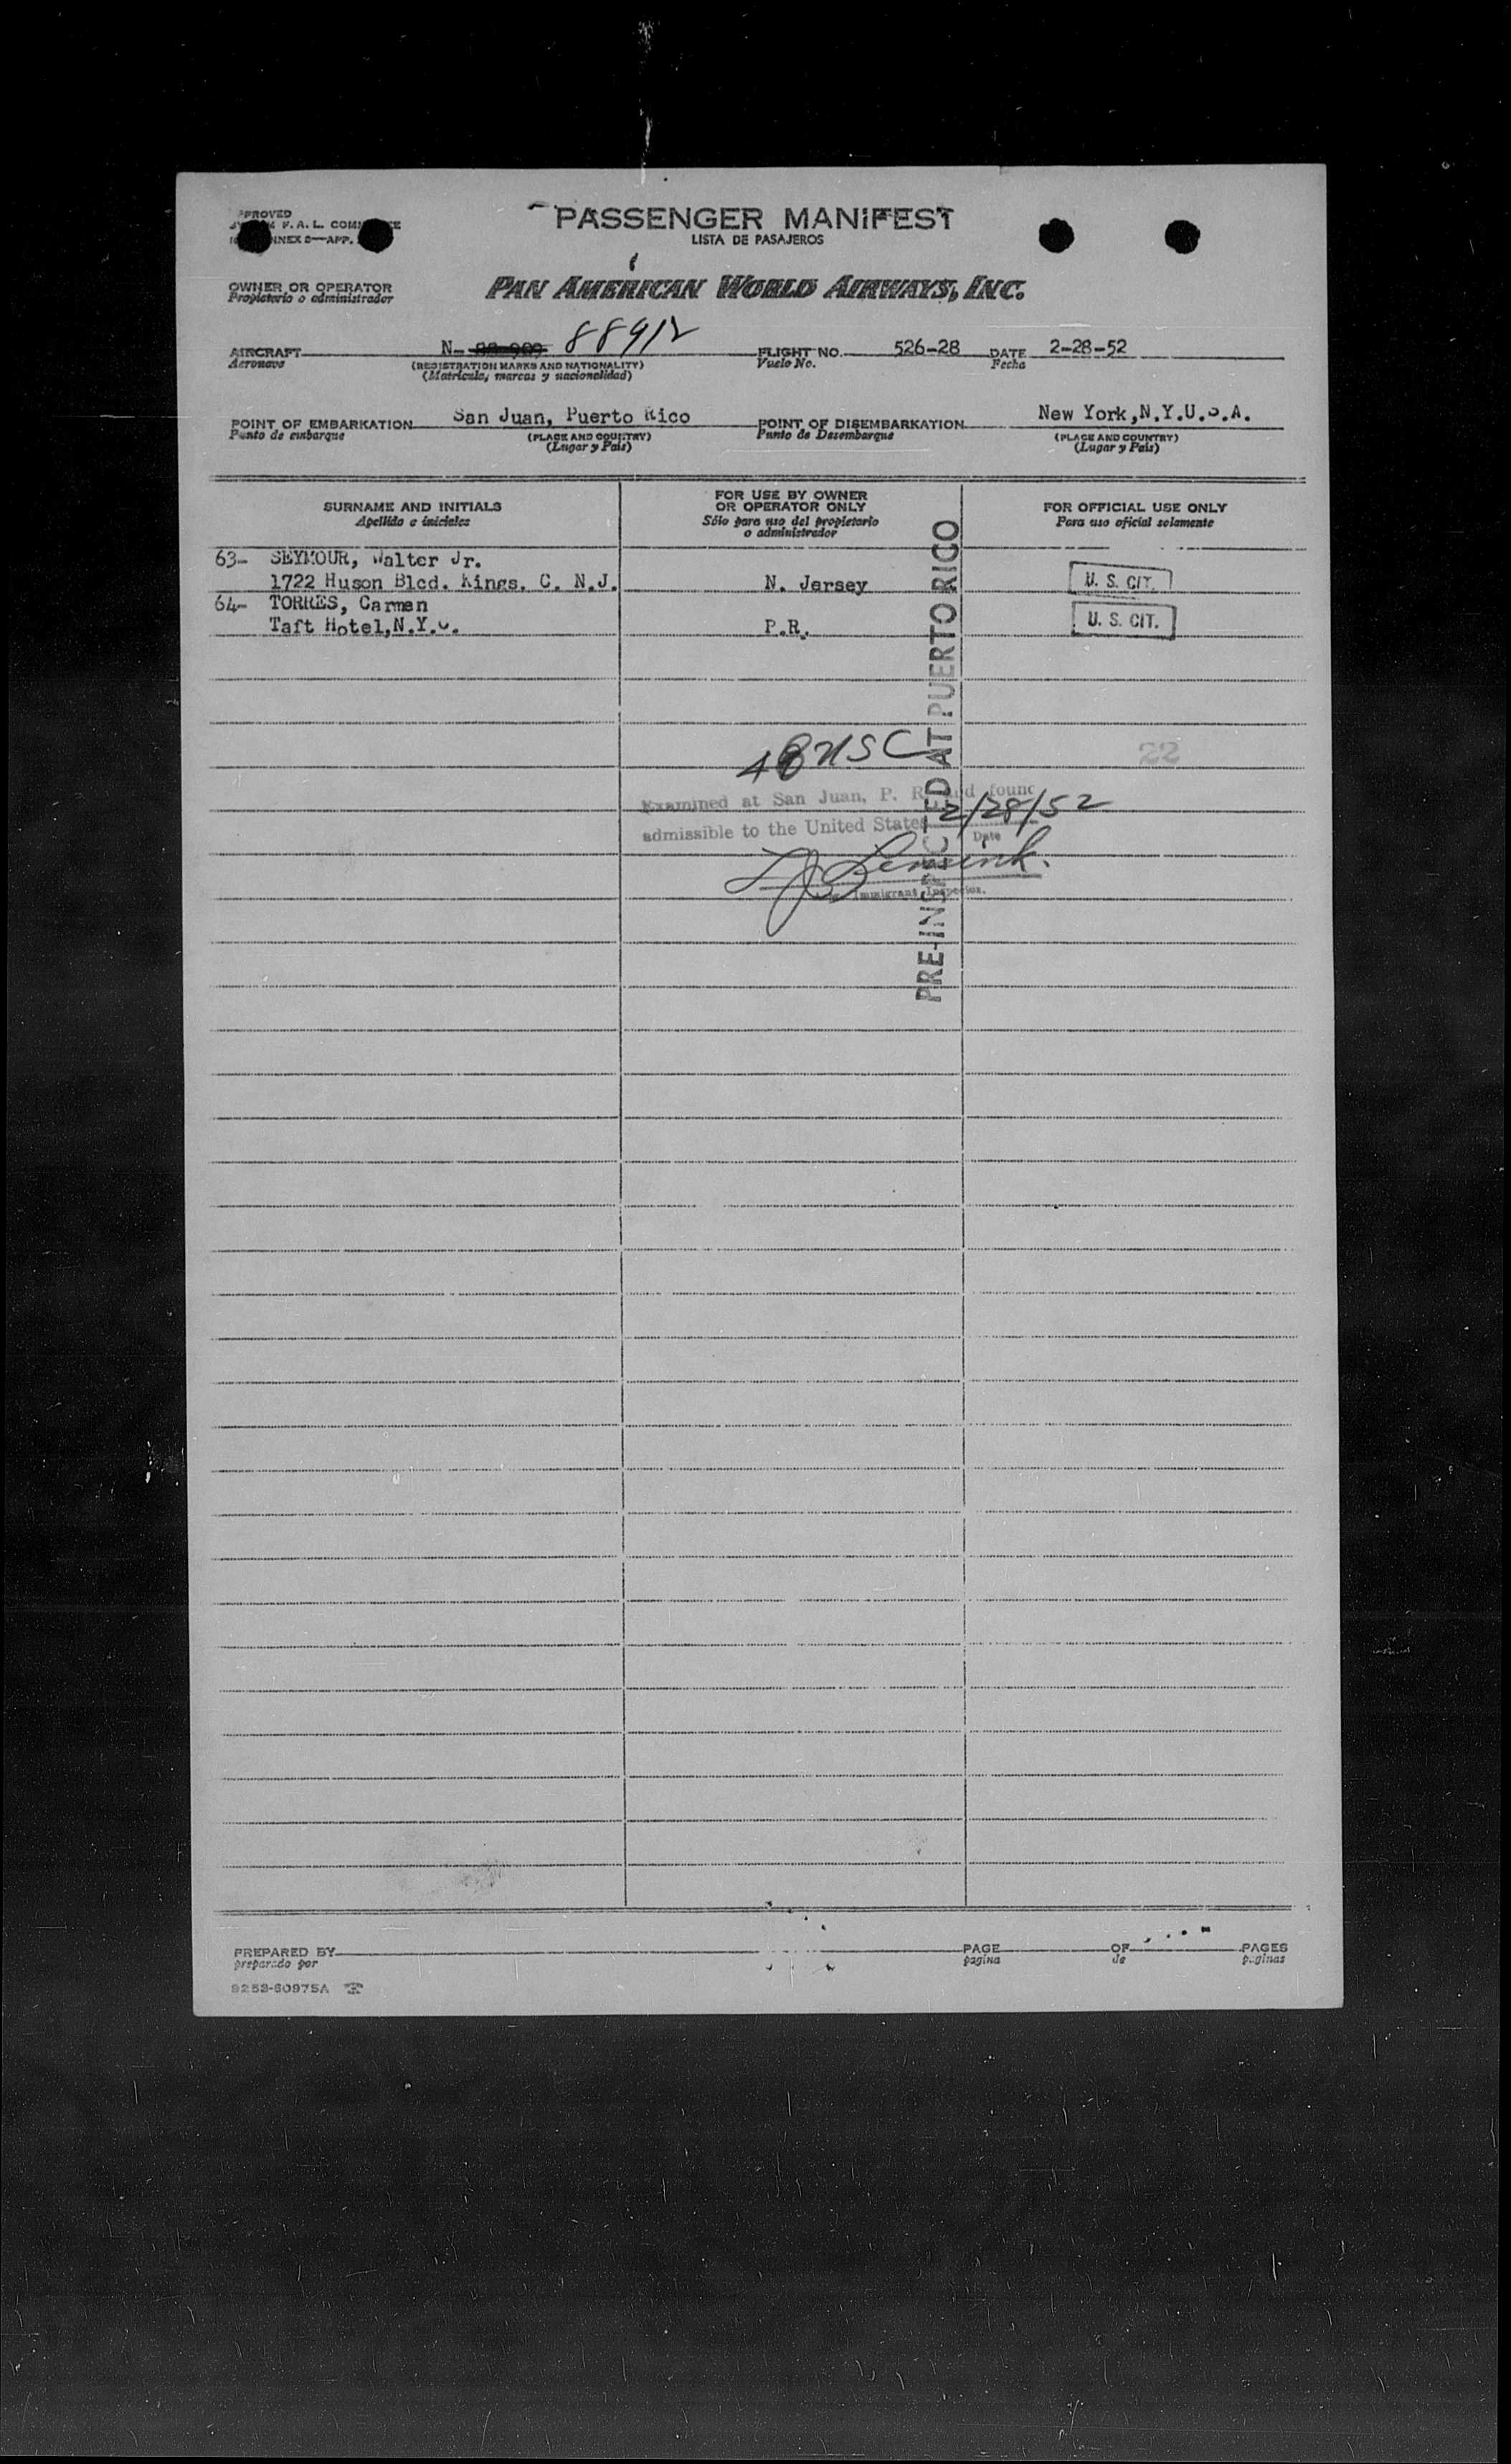 PASSENGER MANIFEST
LISTA DE PASAJEROS
OWNER OR OPERATOR
Propietario o administrador
PAN AMERICAN WORLD AIRWAYS, INC.
AIRCRAFT N- 88912 FLIGHT NO. 526-28 DATE 2-28-52
Aeronave (REGISTRATION MARKS AND NATIONALITY) Vuelo No. Fecha
(Matricula, marcas y nacionalidad)
POINT OF EMBARKATION San Juan, Puerto Rico POINT OF DISEMBARKATION New York,N.Y.U.S.A.
Punto de embarque (PLACE AND COUNTRY) Punto de Desembarque (PLACE AND COUNTRY)
(Lugar y País) (Lugar y País)
SURNAME AND INITIALS
Apellido e iniciales
FOR USE BY OWNER
OR OPERATOR ONLY
Sólo para uso del propietario
o administrador
FOR OFFICIAL USE ONLY
Para uso oficial solamente
63- SEYMOUR, Walter Jr.
1722 Huson Blcd. Kings. C. N.J. N. Jersey U. S. CIT.
64- TORRES, Carmen
Taft Hotel,N.Y.C. P.R. U. S. CIT.
PRE-INSPECTED AT PUERTO RICO
48 USC
22
Examined at San Juan, P. R. and found
admissible to the United States 2/28/52
Date
Immigrant Inspector.
PREPARED BY PAGE OF PAGES
preparado por pagina de paginas
9253-60975A